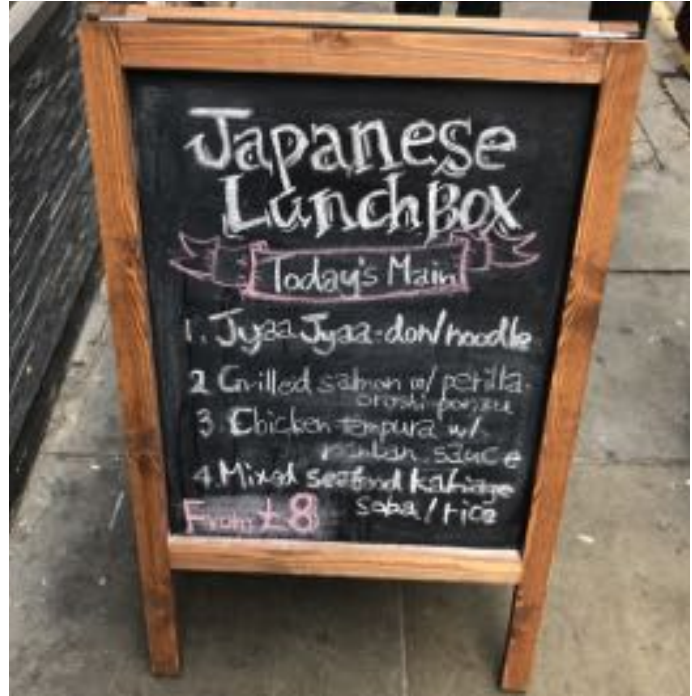 Japanese
Lunch Box
Today's Main
1. Jyaa Jyaa-don/noodle
2 Grilled salmon w/ perilla-
oroshi-ponzu
3 Chicken tempura w/
nanban sauce
4. Mixed seafood kakiage
soba/rice
From £8